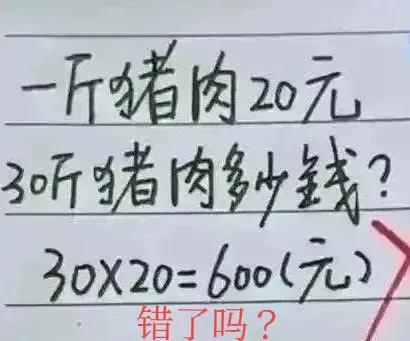 一斤猪肉20元
30斤猪肉多少钱?
30×20=600(元)
错了吗?